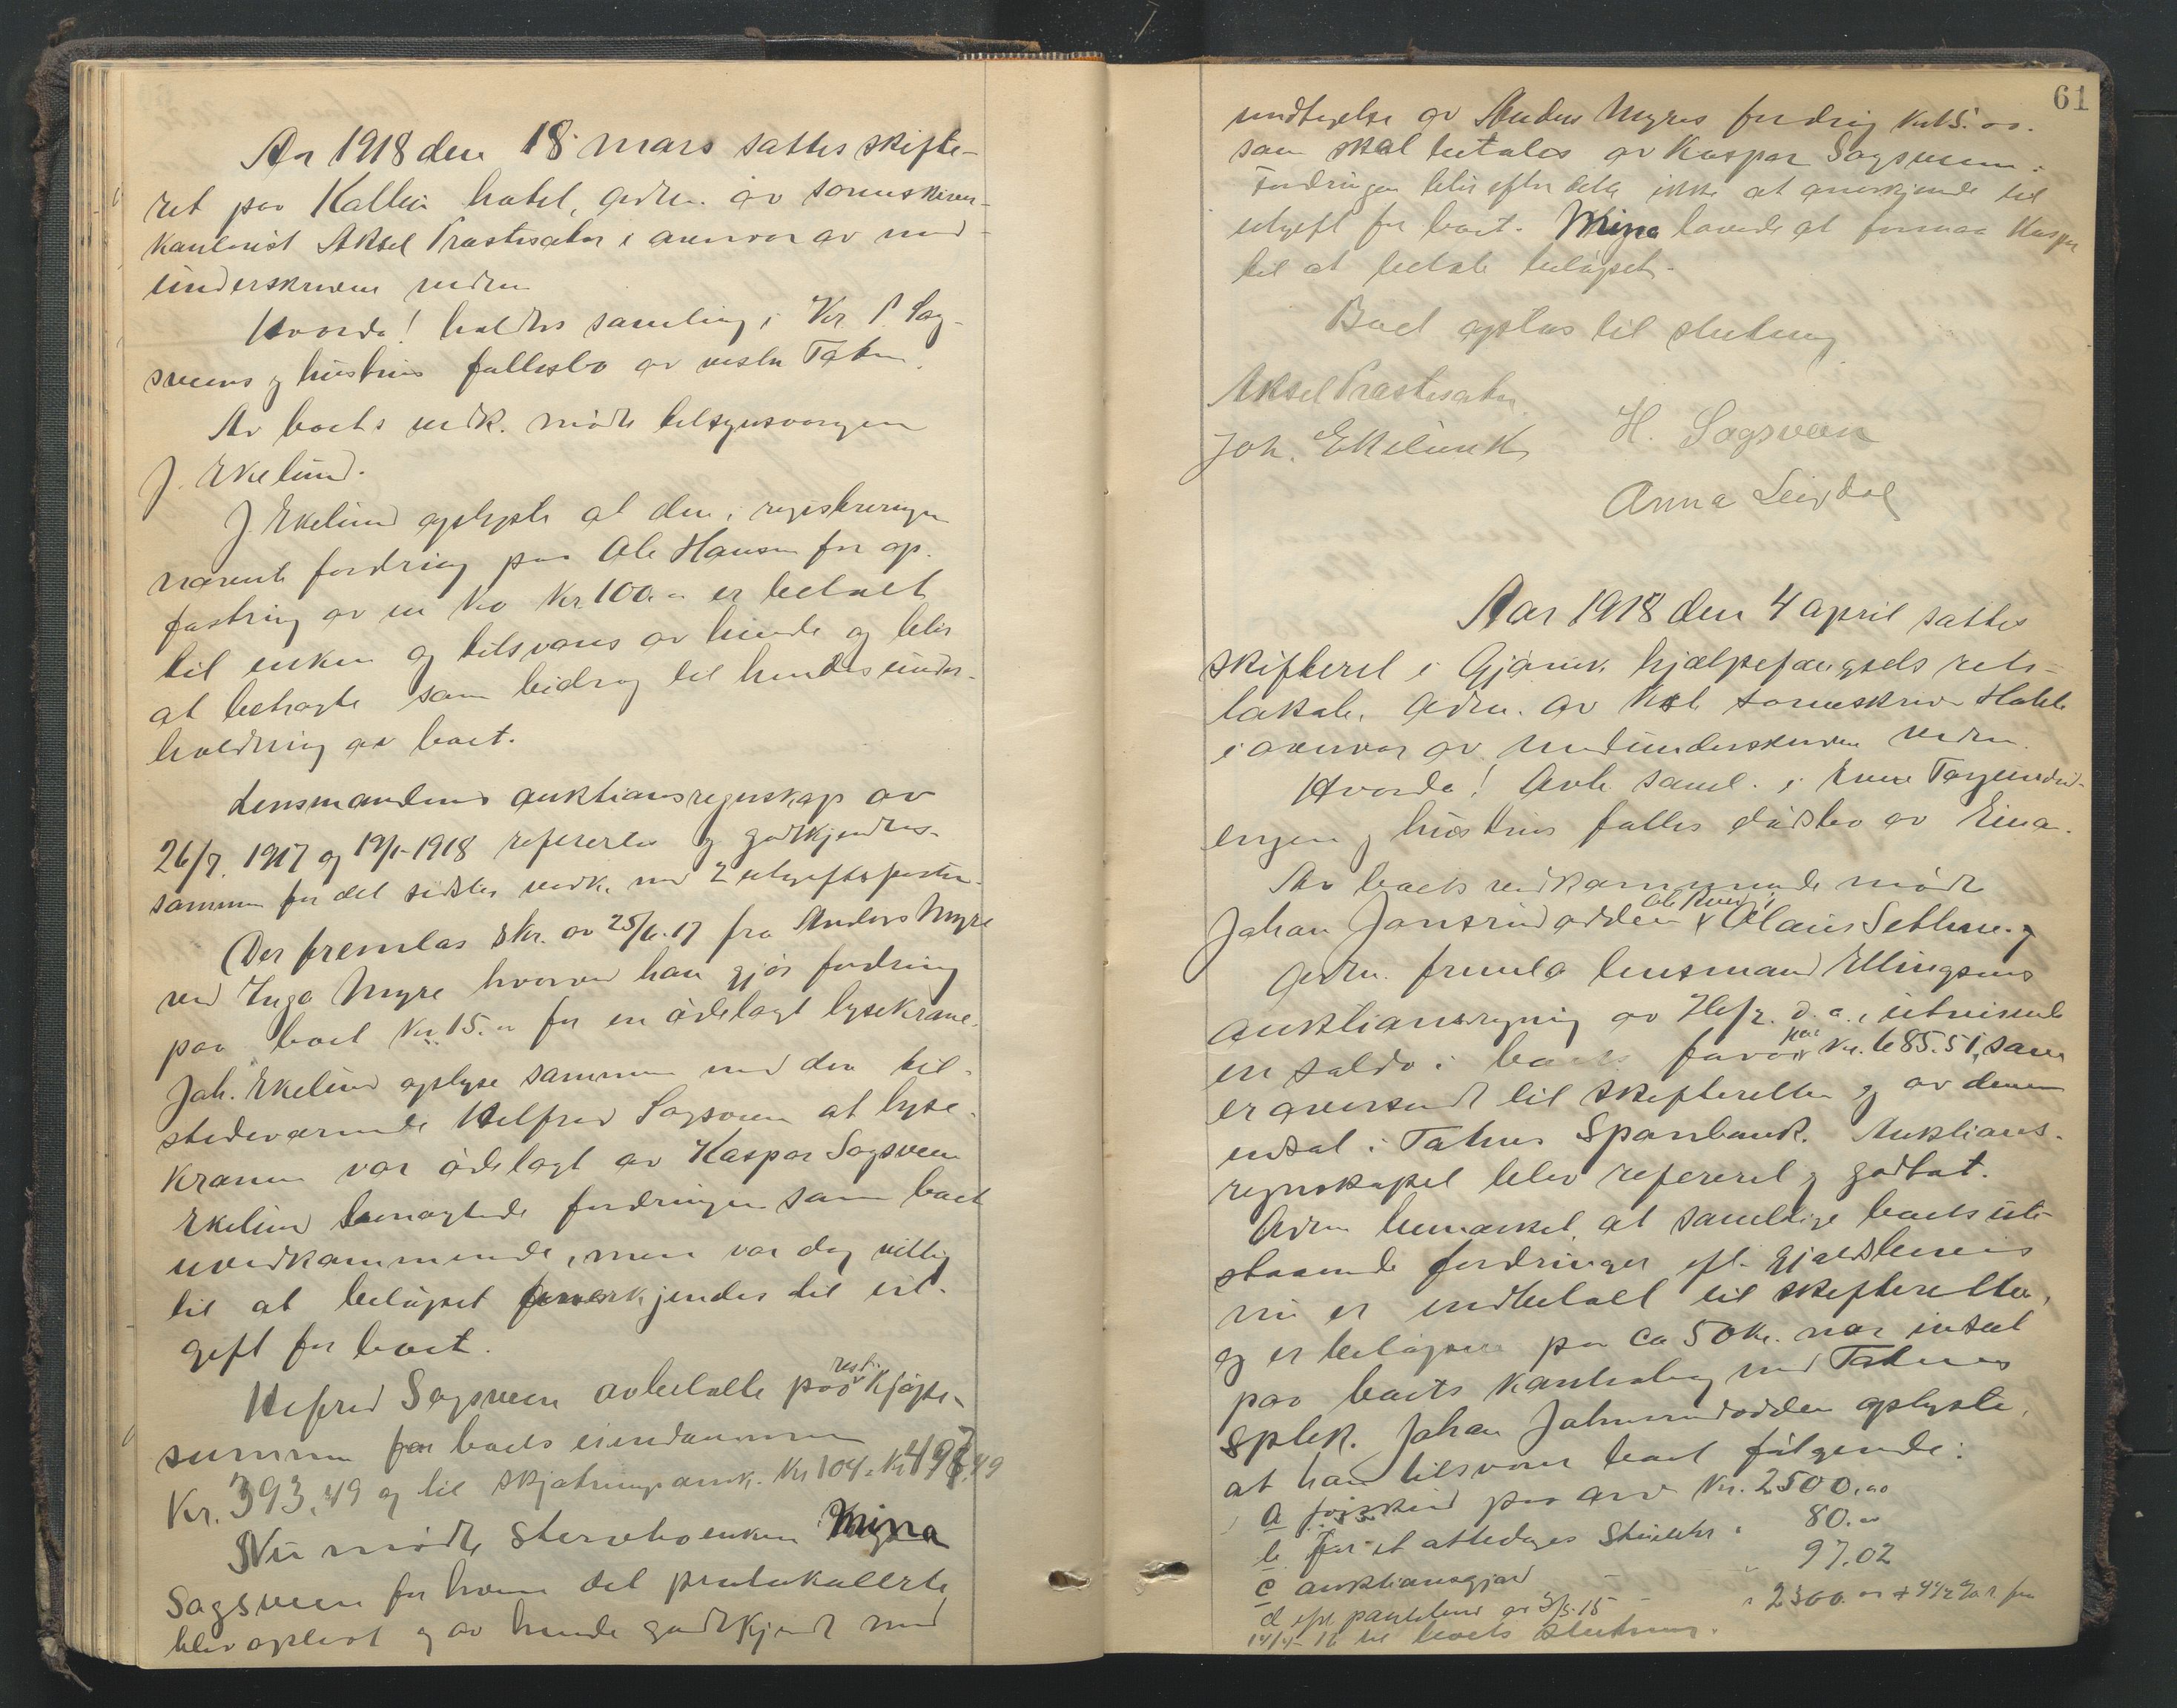 Aar 1918 den 18 mars sattes skifte-
ret paa Kallein hotel, adm. av sorenskriver-
kontorist Aksel Præstesæter i overvær av med-
underskrevne vidner
Hvorda! holdtes samling i Kr. P. Sag-
sveens og hustrus fællesbo av vestre Toten.
Av boets vedk. mødte tilsynsvergen
J. Ekelund.
J. Ekelund oplyste at den i registreringen
nævnte fordring paa Ole Hansen for op-
fostring av en ko Kr. 100.- er betalt
til enken og tilsvares av hende og blir
at betragte som bidrag til hendes under-
holdning av boet.
Lensmandens auktionsregnskap av
26/7. 1917 og 19/1-1918 referertes og godkjendtes
sammen for det sidstes vedk. med 2 utgiftsposter.
Der fremlas skr. av 25/6.17 fra Anders Myre
ved Inga Myre hvorved han gjør fordring
paa boet Kr. 15.- for en ødelagt lysekrone.
Joh. Ekelund oplyse sammen med den til-
stedeværende Helfred Sagsveen at lyse-
kronen var ødelagt av Kaspar Sagsveen
Ekelund benegtede fordringen som boet
uvedkommende, men var dog villig
til at beløpet anerkjendes til ut-
gift for boet.
Helfred Sagsveen avbetalte paa rest. kjøpe-
summen for boets eiendommen
Kr. 393,49 og til skjøtningsomk. Kr 104 = Kr 497,49
Nu mødte stervboenken Mina
Sagsveen for hvem det protokollerte
blev oplæst og av hende godkjendt med
61
undtagelse av Anders Myres fordring Kr. 15.00.
som skal betales av Kaspar Sagsveen.
Fordringen blir efter dette ikke at anerkjende til
utgift for boet. Mina lovede at formaa Kaspar
til at betale beløpet.
Boet optas til slutning
Aksel Præstesæter.
H. Sagsveen
Joh. Ekelund
Anna Leirdal
Aar 1918 den 4 april sattes
skifteret i Gjøvik hjælpefængsels rets-
lokale, adm. av kst. sorenskriver Holte
i overvær av medunderskrevne vidner.
Hvorda! Avh. saml. i Even
engen og hustrus fælles dødsbo av Eina.
Av boets vedkommende mødte
Johan Jonsrudodden Ole &amp; Olaus Sethne og
Adm. fremla lensmand Ellingsens
auktionsregning av d. a., utvisende
en saldo i boets favør paa Kr. 685.51, som
er oversendt til skifteretten og av denne
indsat i Totens Sparebank. Auktions-
regnskapet blev referert og godtat.
Adm. bemærket at samtlige boets ute-
staaende fordringer efter gjældsbevis
nu er indbetalt til skifteretten,
og er beløpene paa ca 50 kr. nær insat
paa boets kontrabog med Totens
Spbk. Johan oplyste,
at han tilsvarer boet følgende:
a forskud paa arv Kr. 2500,00
b. for et " 80.-
c auktionsgjæld - " 97.02
d efter panteobl. av 3/5.15 - " 2300.00 + 4 1/2 % r. fra
14/4-16 til boets slutning.